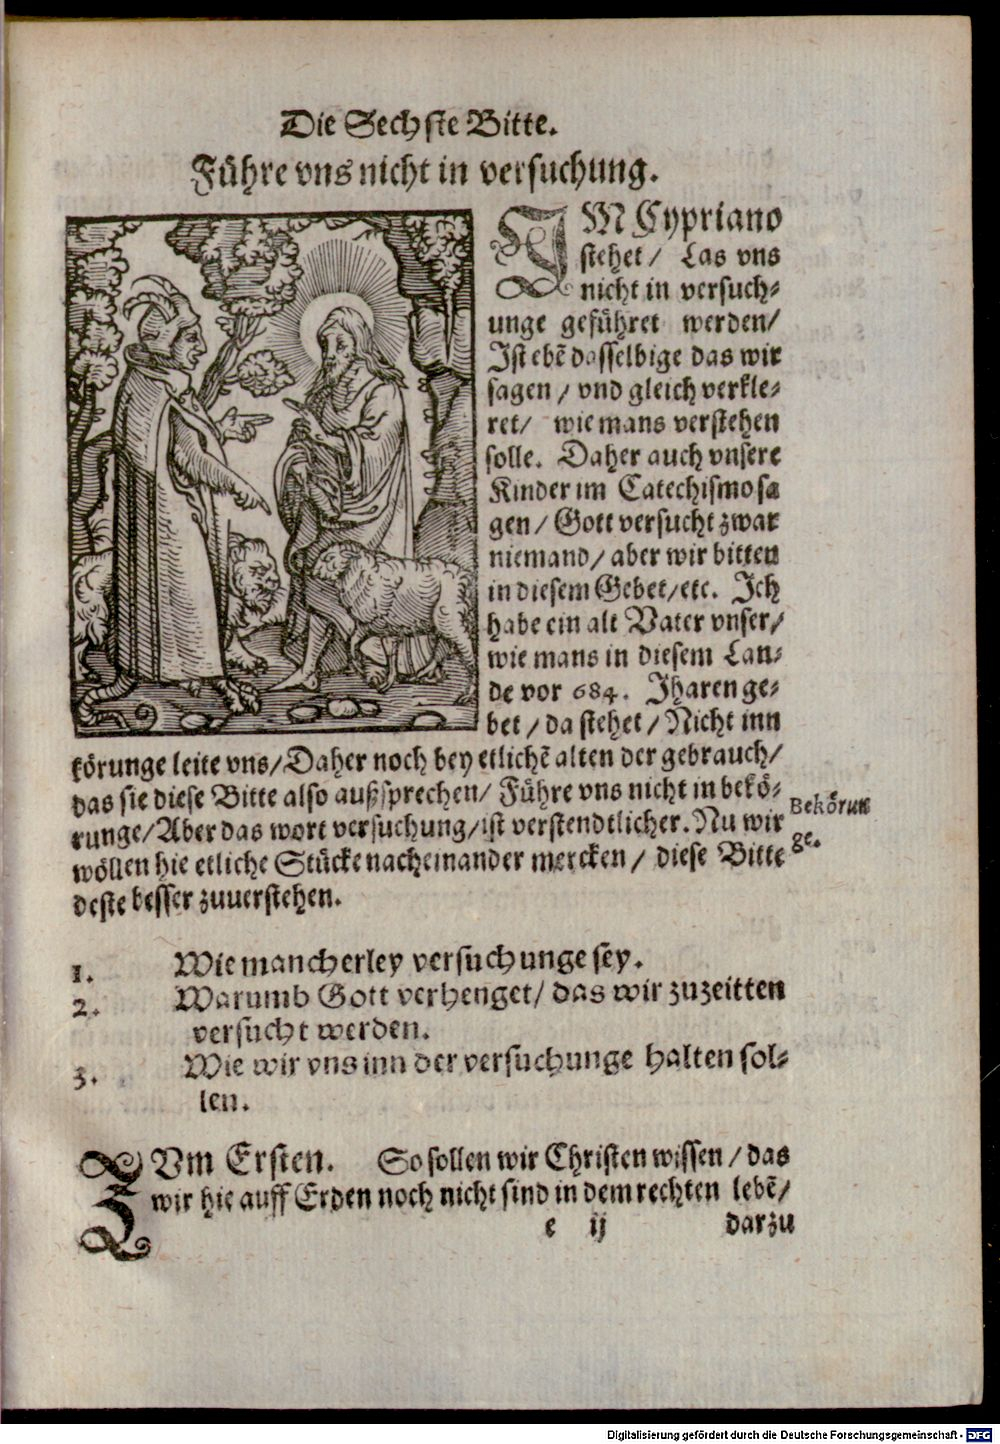 Die Sechste Bitte.
Führe vns nicht in versuchung.
IM Cypriano
stehet / Las vns
nicht in versuch⸗
unge geführet werden/
Ist ebẽ dasselbige das wir
sagen / vnd gleich verkle⸗
ret/ wie mans verstehen
solle. Daher auch vnsere
Kinder im Catechismo sa
gen / Gott versucht zwar
niemand / aber wir bitten
in diesem Gebet/etc. Ich
habe ein alt Vater vnser/
wie mans in diesem Lan⸗
de vor 684. Jharen ge⸗
bet / da stehet / Nicht inn
körunge leite vns/Daher noch bey etlichẽ alten der gebrauch/
das sie diese Bitte also außsprechen/ Führe vns nicht in bekö⸗
runge/Aber das wort versuchung/ist verstendtlicher. Nu wir
wöllen hie etliche Stücke nacheinander mercken / diese Bitte
deste besser zuuerstehen.
Bekörun
ge.
1. Wie mancherley versuchunge sey.
2. Warumb Gott verhenget/ das wir zuzeitten
versucht werden.
3. Wie wir vns inn der versuchunge halten sol⸗
len.
ZVm Ersten. So sollen wir Christen wissen / das
wir hie auff Erden noch nicht sind in dem rechten lebẽ/
e ij darzu
Digitalisierung gefördert durch die Deutsche Forschungsgemeinschaft - DFG